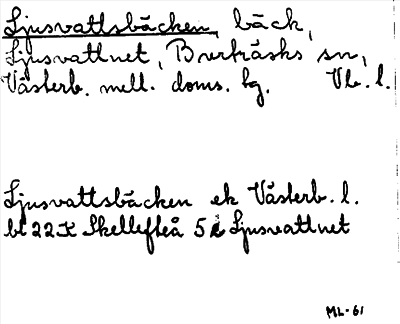 Ljusvattsbäcken, bäck,
Ljusvattnet, Burträsks sn,
Västerb. mell. doms. hg. Vb. l.
Ljusvattsbäcken ek Västerb. l.
bl 22 K Skellefteå 5 Ljusvattnet
ML-61